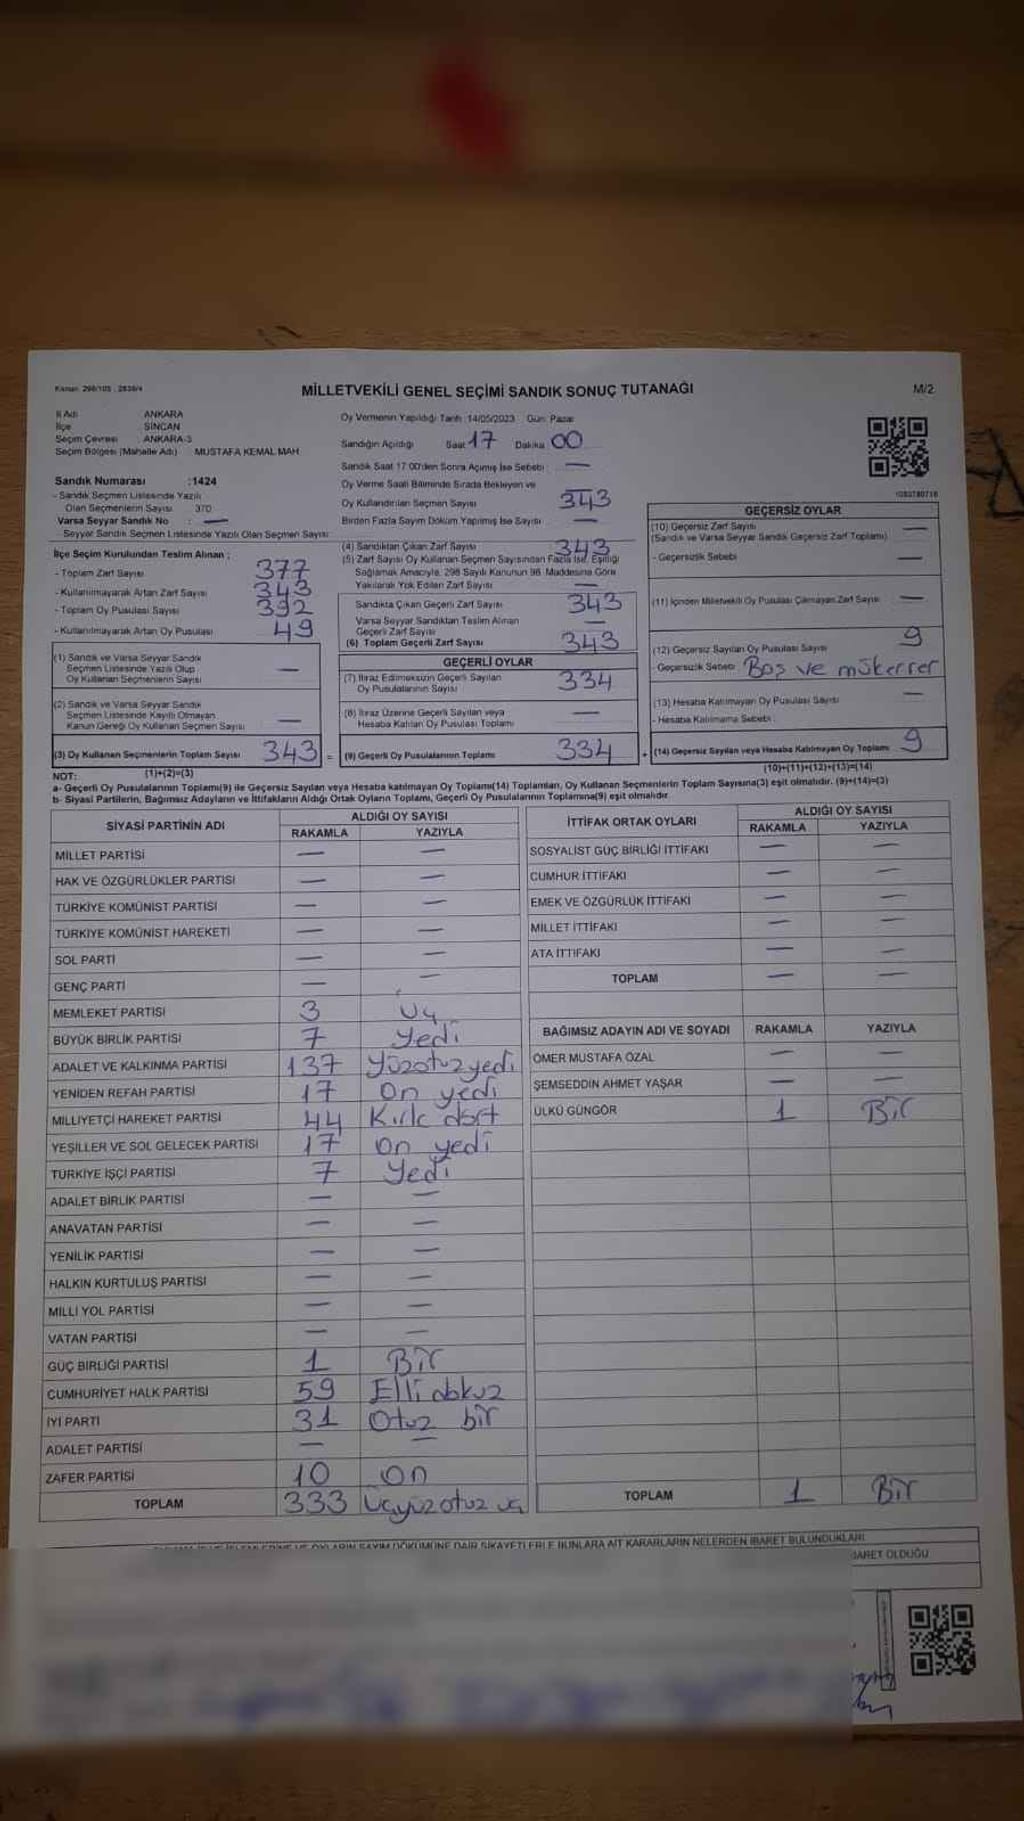 Kanun: 298/105 : 2839/4
MİLLETVEKİLİ GENEL SEÇİMİ SANDIK SONUÇ TUTANAĞI
M/2
İl Adı ANKARA
İlçe SİNCAN
Seçim Çevresi ANKARA-3
Seçim Bölgesi (Mahalle Adı) MUSTAFA KEMAL MAH.
Sandık Numarası :1424
- Sandık Seçmen Listesinde Yazılı
Olan Seçmenlerin Sayısı 370
Varsa Seyyar Sandık No : —
- Seyyar Sandık Seçmen Listesinde Yazılı Olan Seçmen Sayısı
Oy Vermenin Yapıldığı Tarih :14/05/2023 Gün: Pazar
Sandığın Açıldığı Saat 17 Dakika 00
Sandık Saat 17:00'den Sonra Açılmış İse Sebebi : —
Oy Verme Saati Bitiminde Sırada Bekleyen ve
Oy Kullandırılan Seçmen Sayısı 343
Birden Fazla Sayım Döküm Yapılmış İse Sayısı —
1083780716
İlçe Seçim Kurulundan Teslim Alınan ;
- Toplam Zarf Sayısı 377
- Kullanılmayarak Artan Zarf Sayısı 343
- Toplam Oy Pusulası Sayısı 392
- Kullanılmayarak Artan Oy Pusulası 49
(1) Sandık ve Varsa Seyyar Sandık
Seçmen Listesinde Yazılı Olup
Oy Kullanan Seçmenlerin Sayısı —
(2) Sandık ve Varsa Seyyar Sandık
Seçmen Listesinde Kayıtlı Olmayan
Kanun Gereği Oy Kullanan Seçmen Sayısı —
(3) Oy Kullanan Seçmenlerin Toplam Sayısı 343 =
(4) Sandıktan Çıkan Zarf Sayısı 343
(5) Zarf Sayısı Oy Kullanan Seçmen Sayısından Fazla İse, Eşitliği
Sağlamak Amacıyla, 298 Sayılı Kanunun 98. Maddesine Göre
Yakılarak Yok Edilen Zarf Sayısı —
Sandıkta Çıkan Geçerli Zarf Sayısı 343
Varsa Seyyar Sandıktan Teslim Alınan
Geçerli Zarf Sayısı —
(6) Toplam Geçerli Zarf Sayısı 343
GEÇERLİ OYLAR
(7) İtiraz Edilmeksizin Geçerli Sayılan
Oy Pusulalarının Sayısı 334
(8) İtiraz Üzerine Geçerli Sayılan veya
Hesaba Katılan Oy Pusulası Toplamı —
(9) Geçerli Oy Pusulalarının Toplamı 334 +
GEÇERSİZ OYLAR
(10) Geçersiz Zarf Sayısı —
(Sandık ve Varsa Seyyar Sandık Geçersiz Zarf Toplamı)
- Geçersizlik Sebebi —
(11) İçinden Milletvekili Oy Pusulası Çıkmayan Zarf Sayısı —
(12) Geçersiz Sayılan Oy Pusulası Sayısı 9
- Geçersizlik Sebebi Boş ve mükerrer
(13) Hesaba Katılmayan Oy Pusulası Sayısı —
- Hesaba Katılmama Sebebi :
(14) Geçersiz Sayılan veya Hesaba Katılmayan Oy Toplamı 9
NOT: (1)+(2)=(3) (10)+(11)+(12)+(13)=(14)
a- Geçerli Oy Pusulalarının Toplamı(9) ile Geçersiz Sayılan veya Hesaba katılmayan Oy Toplamı(14) Toplamları, Oy Kullanan Seçmenlerin Toplam Sayısına(3) eşit olmalıdır. (9)+(14)=(3)
b- Siyasi Partilerin, Bağımsız Adayların ve İttifakların Aldığı Ortak Oyların Toplamı, Geçerli Oy Pusulalarının Toplamına(9) eşit olmalıdır.
SİYASİ PARTİNİN ADI ALDIĞI OY SAYISI
RAKAMLA YAZIYLA
MİLLET PARTİSİ — —
HAK VE ÖZGÜRLÜKLER PARTİSİ — —
TÜRKİYE KOMÜNİST PARTİSİ — —
TÜRKİYE KOMÜNİST HAREKETİ — —
SOL PARTİ — —
GENÇ PARTİ — —
MEMLEKET PARTİSİ 3 Üç
BÜYÜK BİRLİK PARTİSİ 7 Yedi
ADALET VE KALKINMA PARTİSİ 137 Yüzotuzyedi
YENİDEN REFAH PARTİSİ 17 On yedi
MİLLİYETÇİ HAREKET PARTİSİ 44 Kırk dört
YEŞİLLER VE SOL GELECEK PARTİSİ 17 On yedi
TÜRKİYE İŞÇİ PARTİSİ 7 Yedi
ADALET BİRLİK PARTİSİ — —
ANAVATAN PARTİSİ — —
YENİLİK PARTİSİ — —
HALKIN KURTULUŞ PARTİSİ — —
MİLLİ YOL PARTİSİ — —
VATAN PARTİSİ — —
GÜÇ BİRLİĞİ PARTİSİ 1 Bir
CUMHURİYET HALK PARTİSİ 59 Elli dokuz
İYİ PARTİ 31 Otuz bir
ADALET PARTİSİ — —
ZAFER PARTİSİ 10 On
TOPLAM 333 Üçyüzotuz üç
İTTİFAK ORTAK OYLARI ALDIĞI OY SAYISI
RAKAMLA YAZIYLA
SOSYALİST GÜÇ BİRLİĞİ İTTİFAKI — —
CUMHUR İTTİFAKI — —
EMEK VE ÖZGÜRLÜK İTTİFAKI — —
MİLLET İTTİFAKI — —
ATA İTTİFAKI — —
TOPLAM — —
BAĞIMSIZ ADAYIN ADI VE SOYADI RAKAMLA YAZIYLA
ÖMER MUSTAFA ÖZAL — —
ŞEMSEDDİN AHMET YAŞAR — —
ÜLKÜ GÜNGÖR 1 Bir
TOPLAM 1 Bir
OYLARIN SAYIM DÖKÜMÜNE DAİR ŞİKAYETLERLE BUNLARA AİT KARARLARIN NELERDEN İBARET BULUNDUKLARI
İBARET OLDUĞU